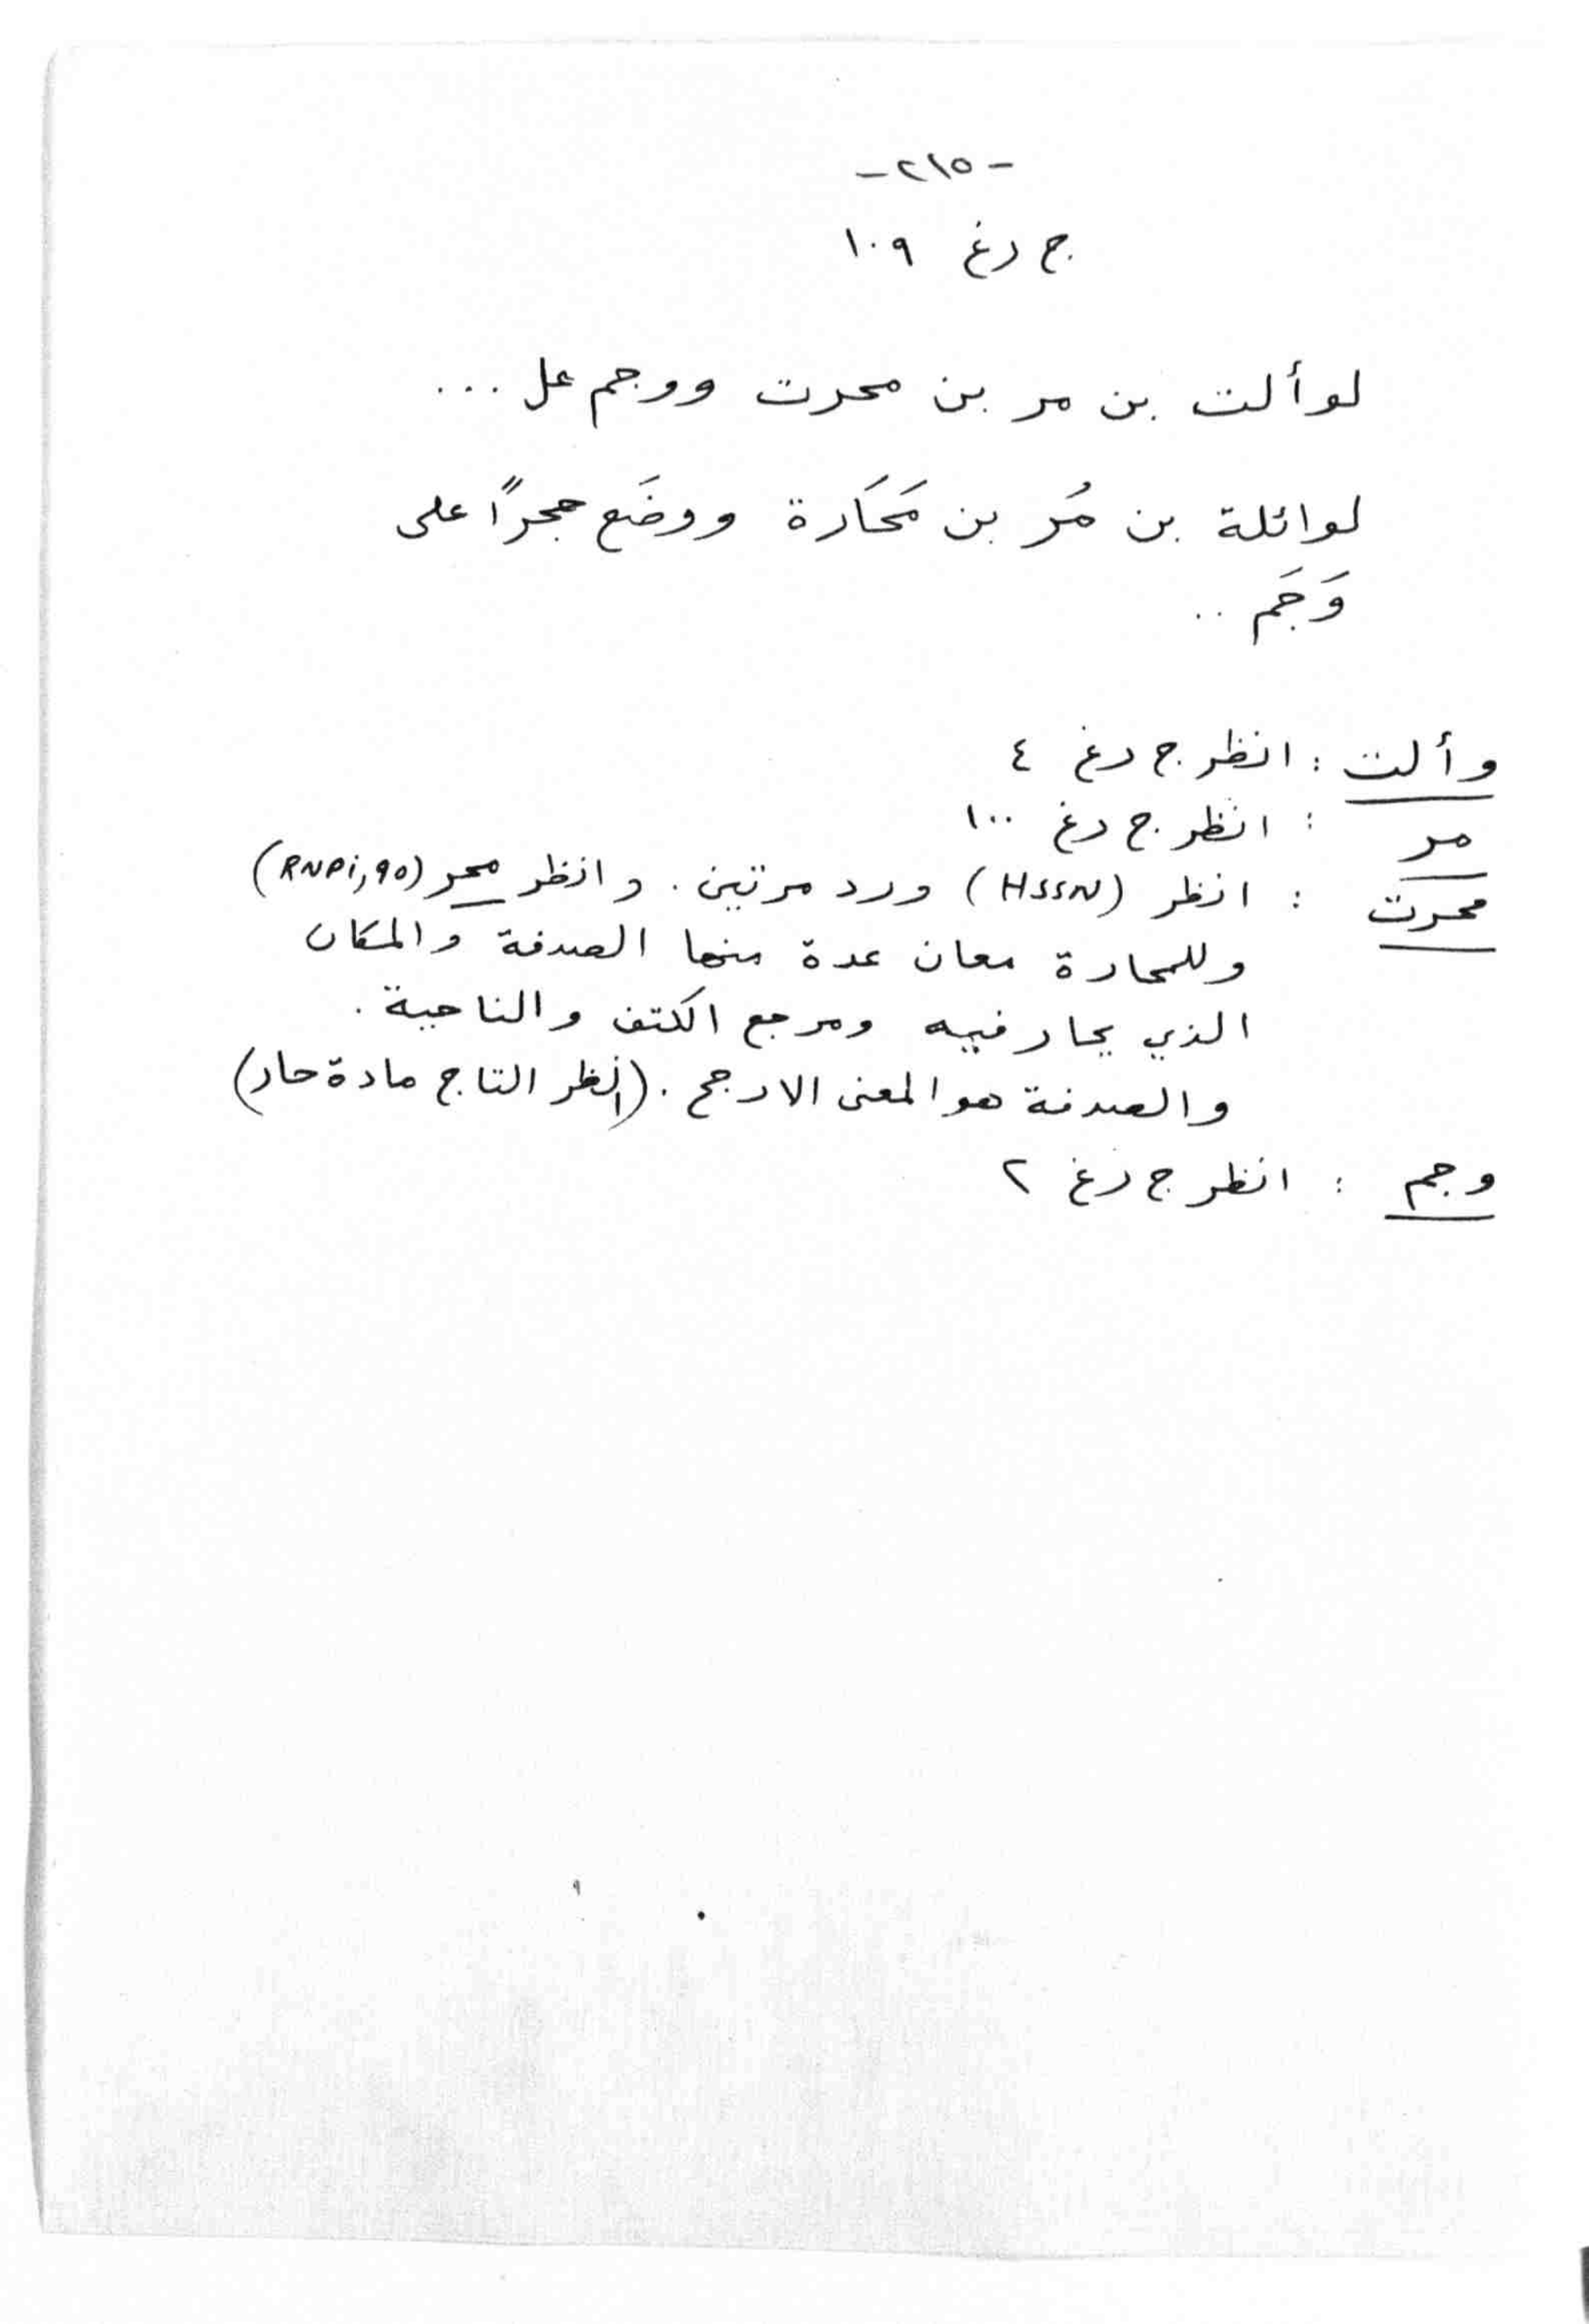 -٢١٥-
ج رغ ١٠٩
لوألت بن مر بن محرت ووجم عل ...
لوائلة بن مُر بن مَحَارة ووضَع حجرًا على
وَجَم ..
وألت : انظر ج رغ ٤
مر : انظر ج رغ ١٠٠
محرت : انظر (HSSN) ورد مرتين . وانظر محر (RNPi,٩٥)
وللمحارة معان عدة منها الصدفة والمكان
الذي يحار فيه ومرجع الكتف والناحية .
والصدفة هو المعنى الارجح . (انظر التاج مادة حار)
وجم : انظر ج رغ ٢